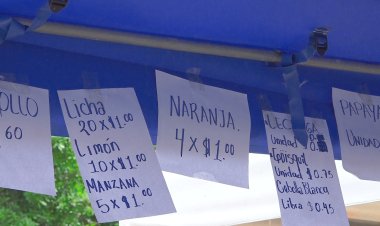 60
Licha
20 x $1.00
Limón
10 x $1.00
MANZANA
5 x $1.00
NARANJA.
4 x $1.00
Unidad
Unidad $0.75
Cebolla Blanca
Libra $0.45
PAPAYA
UNIDAD